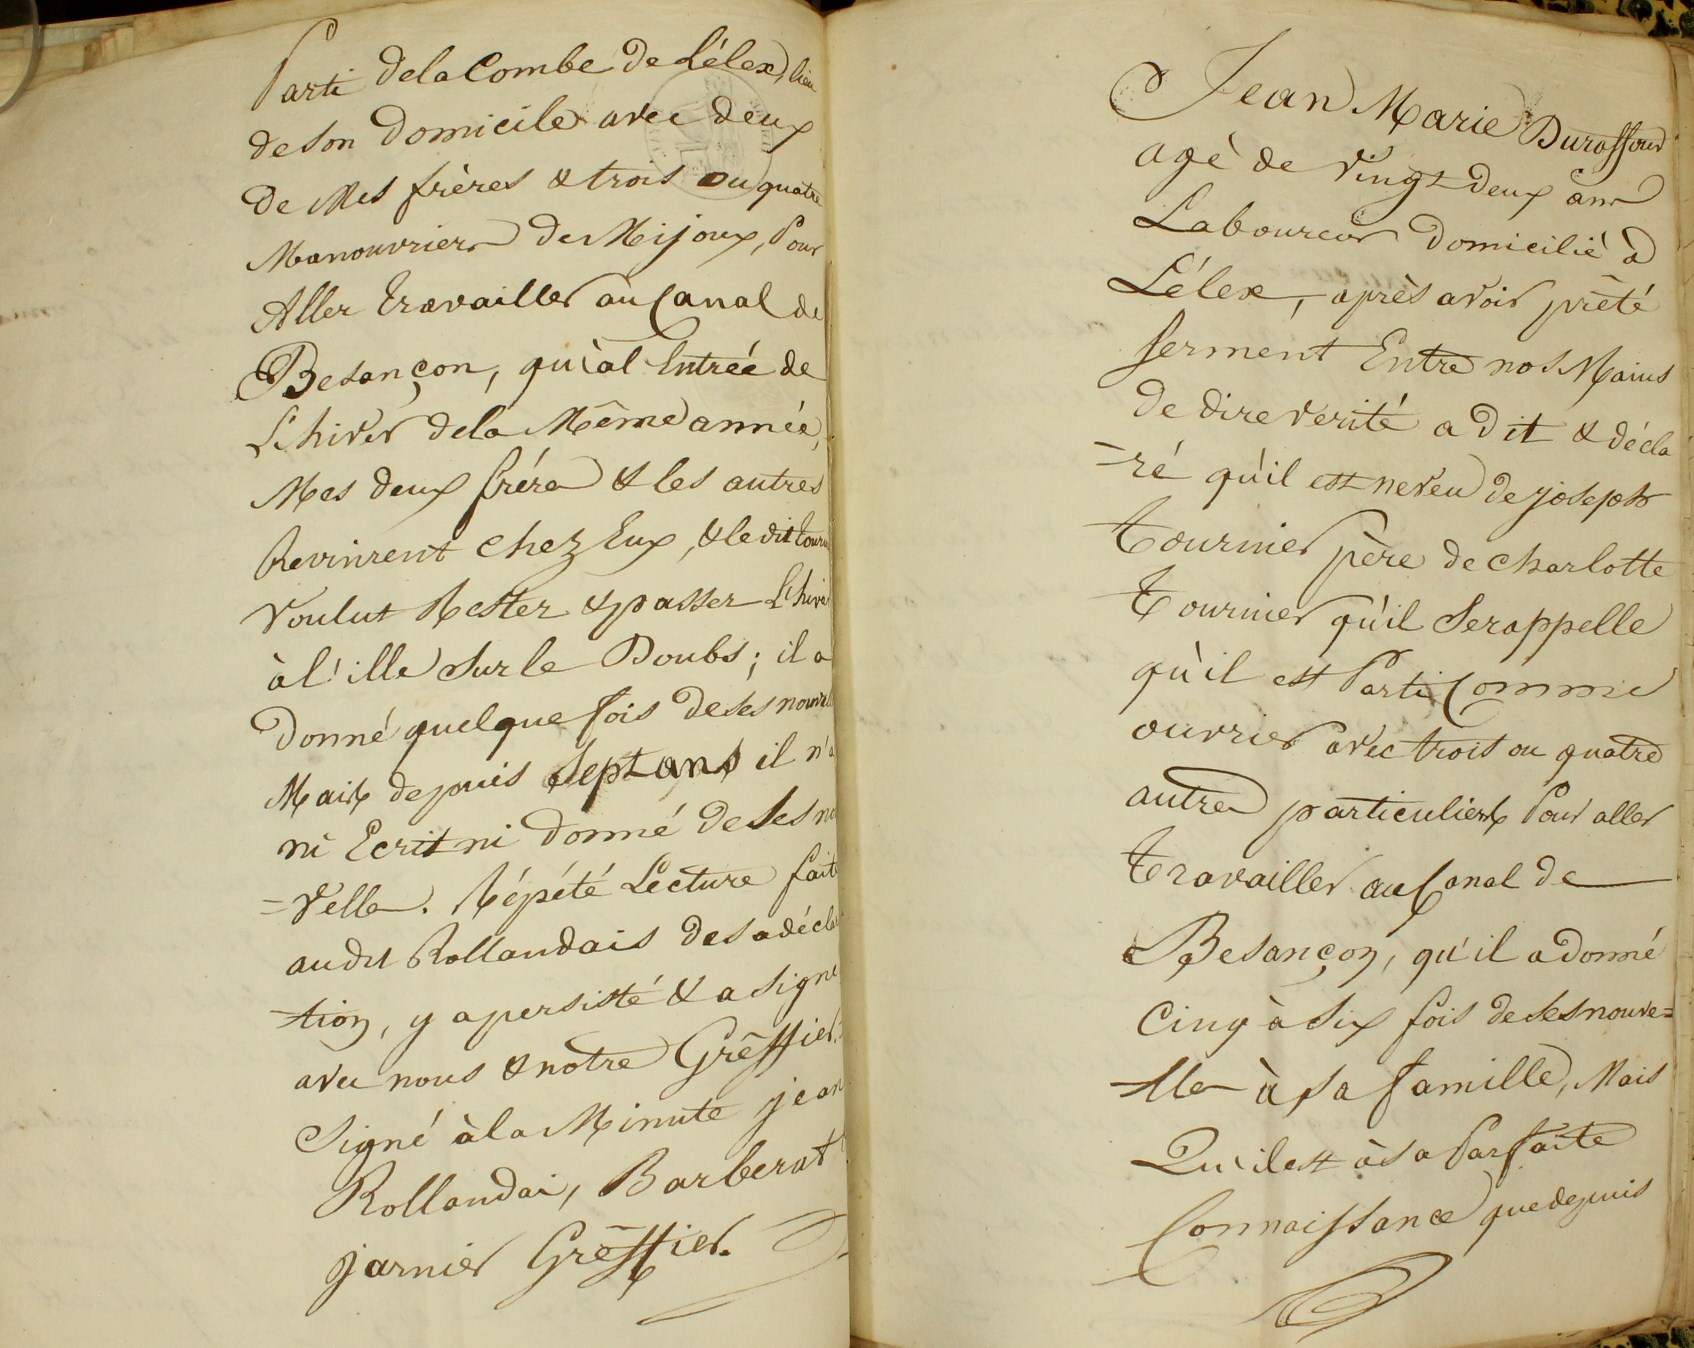 Parti dela Combe de Lélex, lieu
de son Domicile avec deux
de Mes frères & trois ou quatre
Manouvriers de Mijoux, Pour
Aller travailler au Canal de
Besançon, qu'àl Entrée de
L'hiver dela Même année,
Mes deux fréres & les autres
Revinrent chez Eux, & le dit
voulut Rester & passer L'hiver
à l'ille sur le Doubs; il a
donné quelque fois de ses
Mais depuis Sept ans il n'a
ni Ecrit ni donné de ses
=velles. Répété Lecture faite
audit Rollandais de sa décla
-tion, y a persisté & a signé
avec nous & notre Grêffier.
Signé à la Minute jean
Rollandai, Barberat
jarnier Grêffier.
Jean Marie Duraffourd
agé de vingt deux ans
Laboureur domicilié à
Lélex, après avoir prêté
serment Entre nos Mains
de dire verité a dit & décla
=ré qu'il est neveu de joseph
tournier père de charlotte
tournier qu'il se rappelle
qu'il est Parti Comme
ouvrier avec trois ou quatre
autres particuliers Pour aller
travailler au Canal de
Besançon, qu'il a donné
cinq à six fois de ses nouve=
-lles à sa famille, Mais
Qu'il est à sa Parfaite
Connaissance que depuis